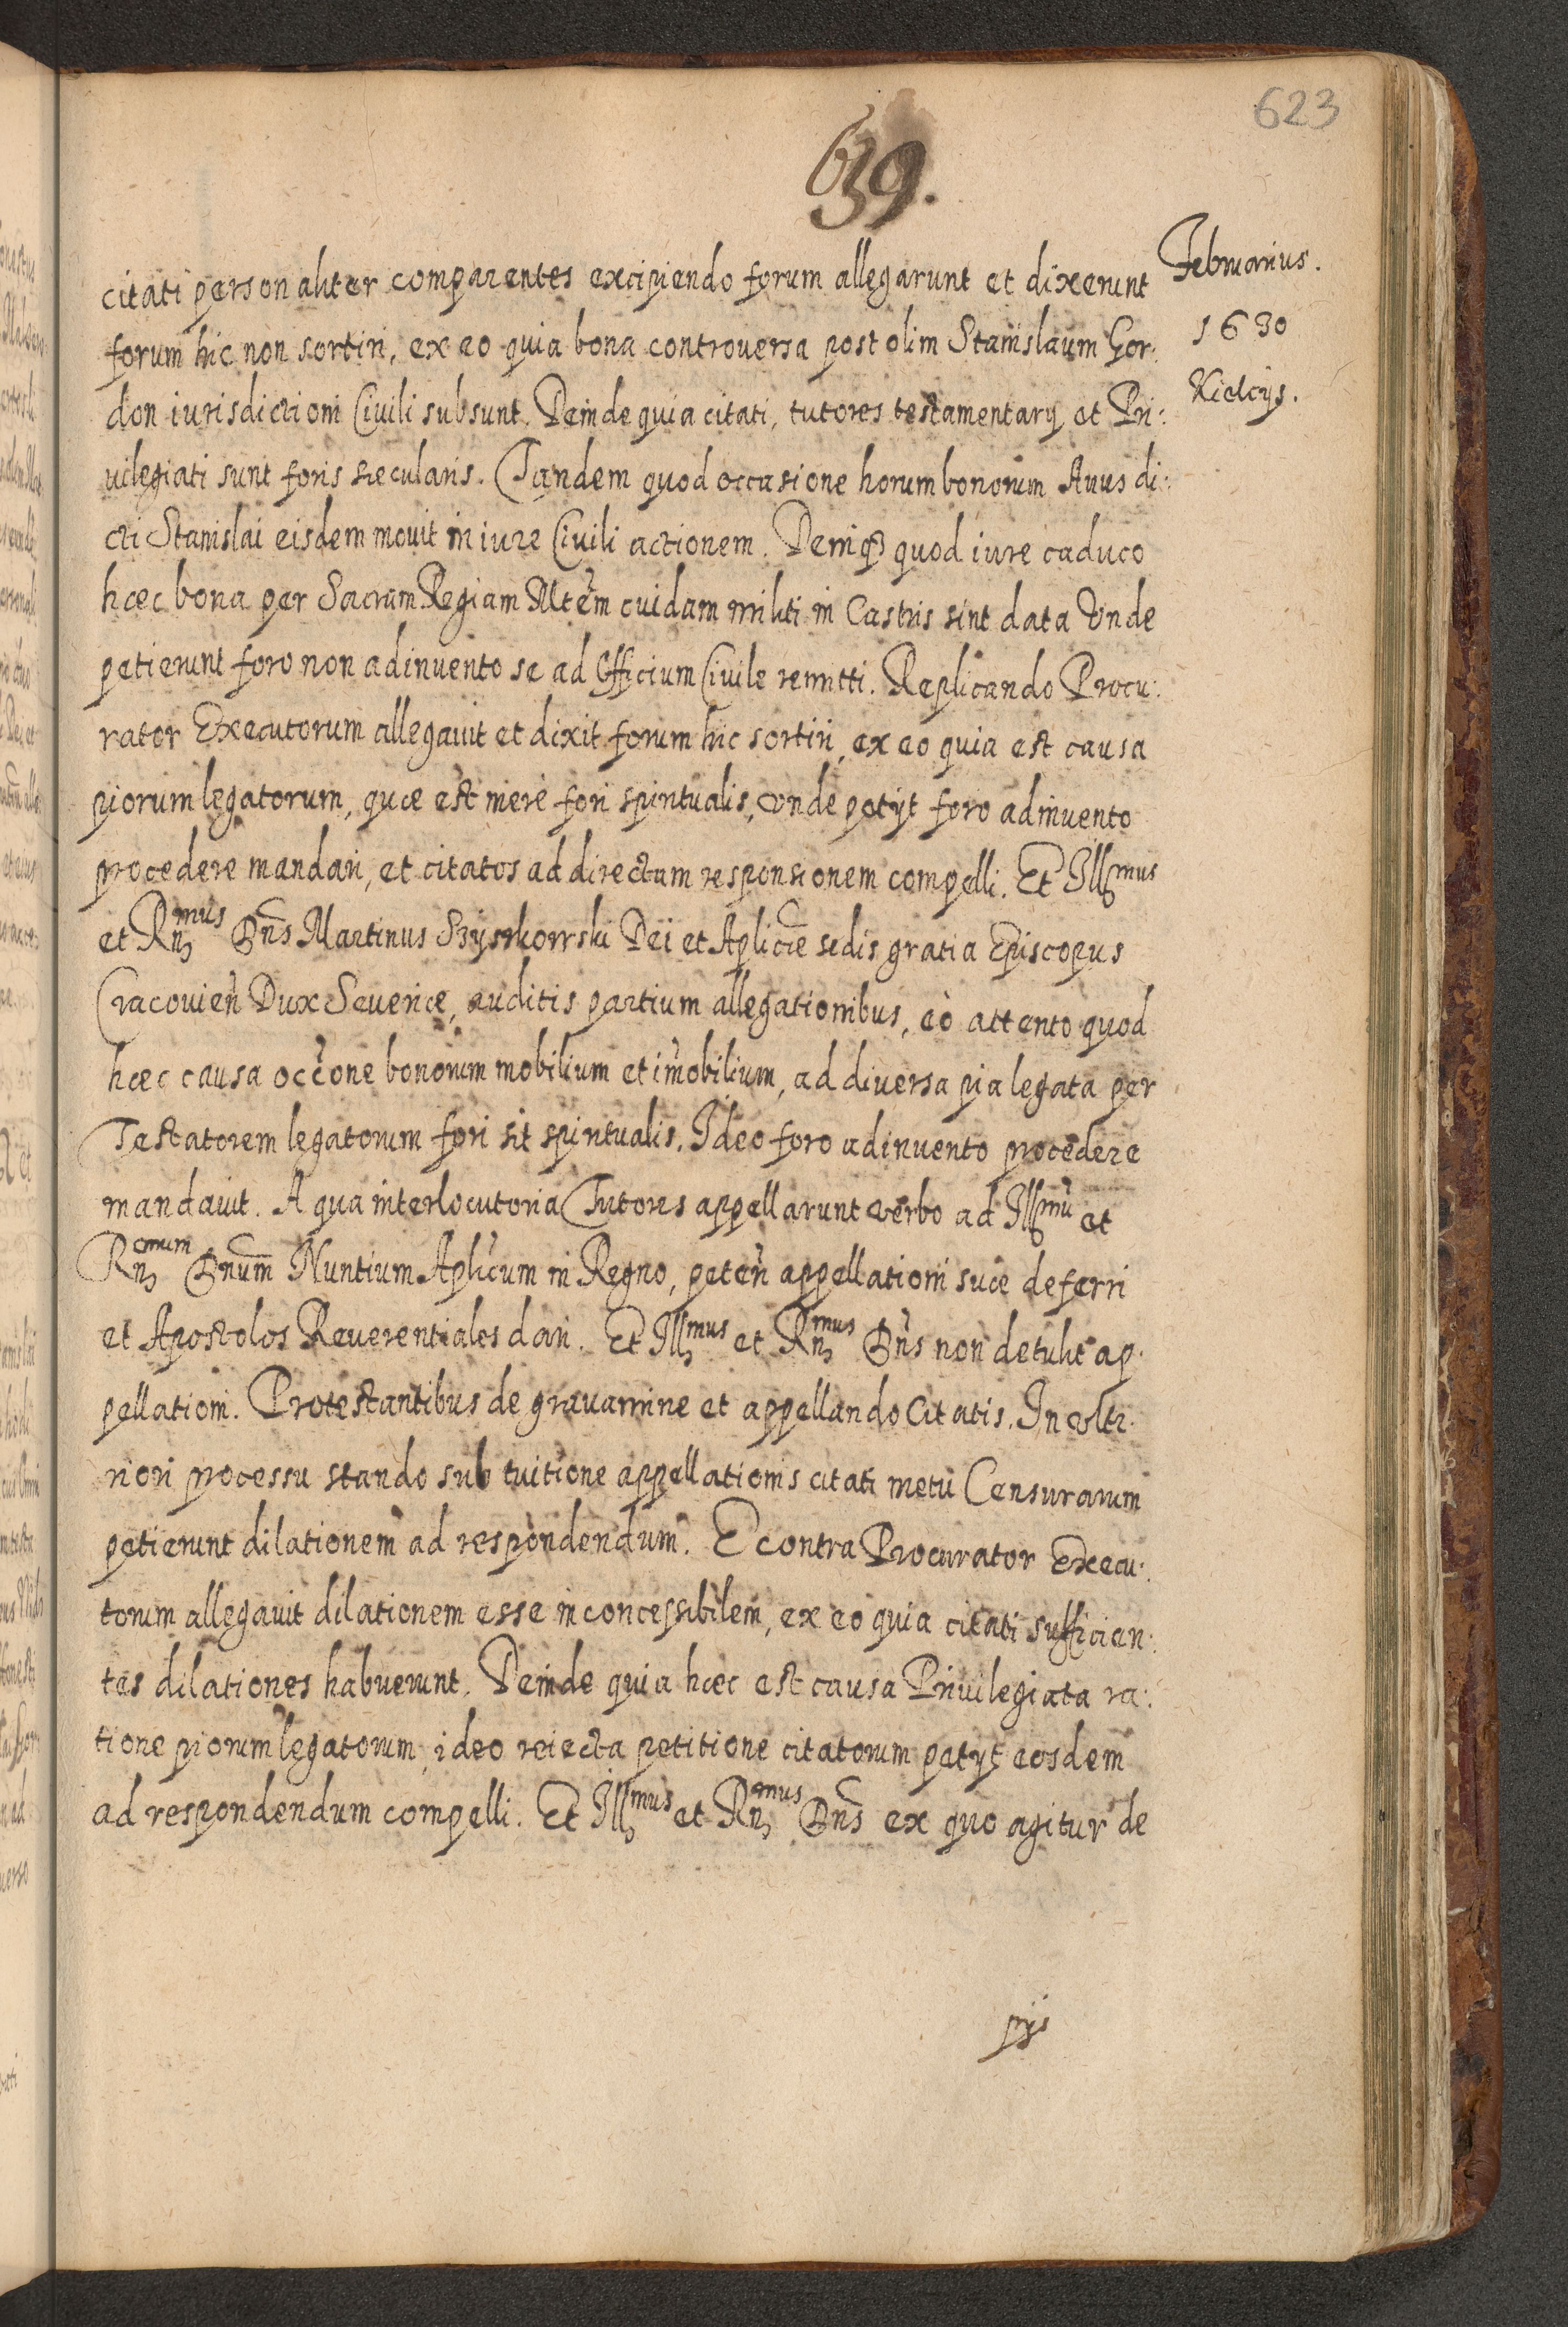 623
639.
Februarius.
1630
Kielcijs.
citati personaliter comparentes excipiendo forum allegarunt et dixerunt
forum hic non sortiri, ex eo quia bona controversa post olim Stanislaum Gor:
don iurisdictioni Civili subsunt. Deinde quia citati, tutores testamentarij et Pri:
uilegiati sunt foris sæcularis. Tandem quod occasione horum bonorum Auus di:
cti Stanislai eisdem mouit in iure Civili actionem. Deniqꝫ quod iure caduco
hæc bona per Sacram Regiam Mtem cuidam militi in Castris sint data Vnde
petierunt foro non adinuento se ad Officium Civile remitti. Replicando Procu:
rator Executorum allegauit et dixit forum hic sortiri, ex eo quia est causa
piorum legatorum, quæ est merè fori spiritualis, vnde petijt foro adinuento
procedere mandari, et citatos ad directam responsionem compelli. Et Illmus
et Rnmus Dns Martinus Szyszkowski Dei et Aplicæ sedis gratia Episcopus
Cracovien Dux Severiæ, auditis partium allegationibus, eò attento quod
hæc causa occone bonorum mobilium et imobilium, ad diuersa pia legata per
Testatorem legatorum fori sit spiritualis. Ideo foro adinuento procedere
mandauit. A qua interlocutoria Tutores appellarunt verbo ad Illmū et
Rnemum Dnum Nuntium Aplicum in Regno, peten appellationi suæ deferri
et Apostolos Reuerentiales dari. Et Illmus et Rnmus Dns non detulit ap:
pellationi. Protestantibus de grauamine et appellando Citatis. In vlte:
riori processu stando sub tuitione appellationis citati metu Censurarum
petierunt dilationem ad respondendum. E contra Procurator Execu:
torum allegauit dilationem esse inconcessibilem, ex eo quia citati sufficien:
tes dilationes habuerunt. Deinde quia hæc est causa Priuilegiata ra:
tione piorum legatorum, ideo reiecta petitione citatorum petijt eosdem
ad respondendum compelli. Et Illmus et Rnmus Dns ex quo agitur de
pijs